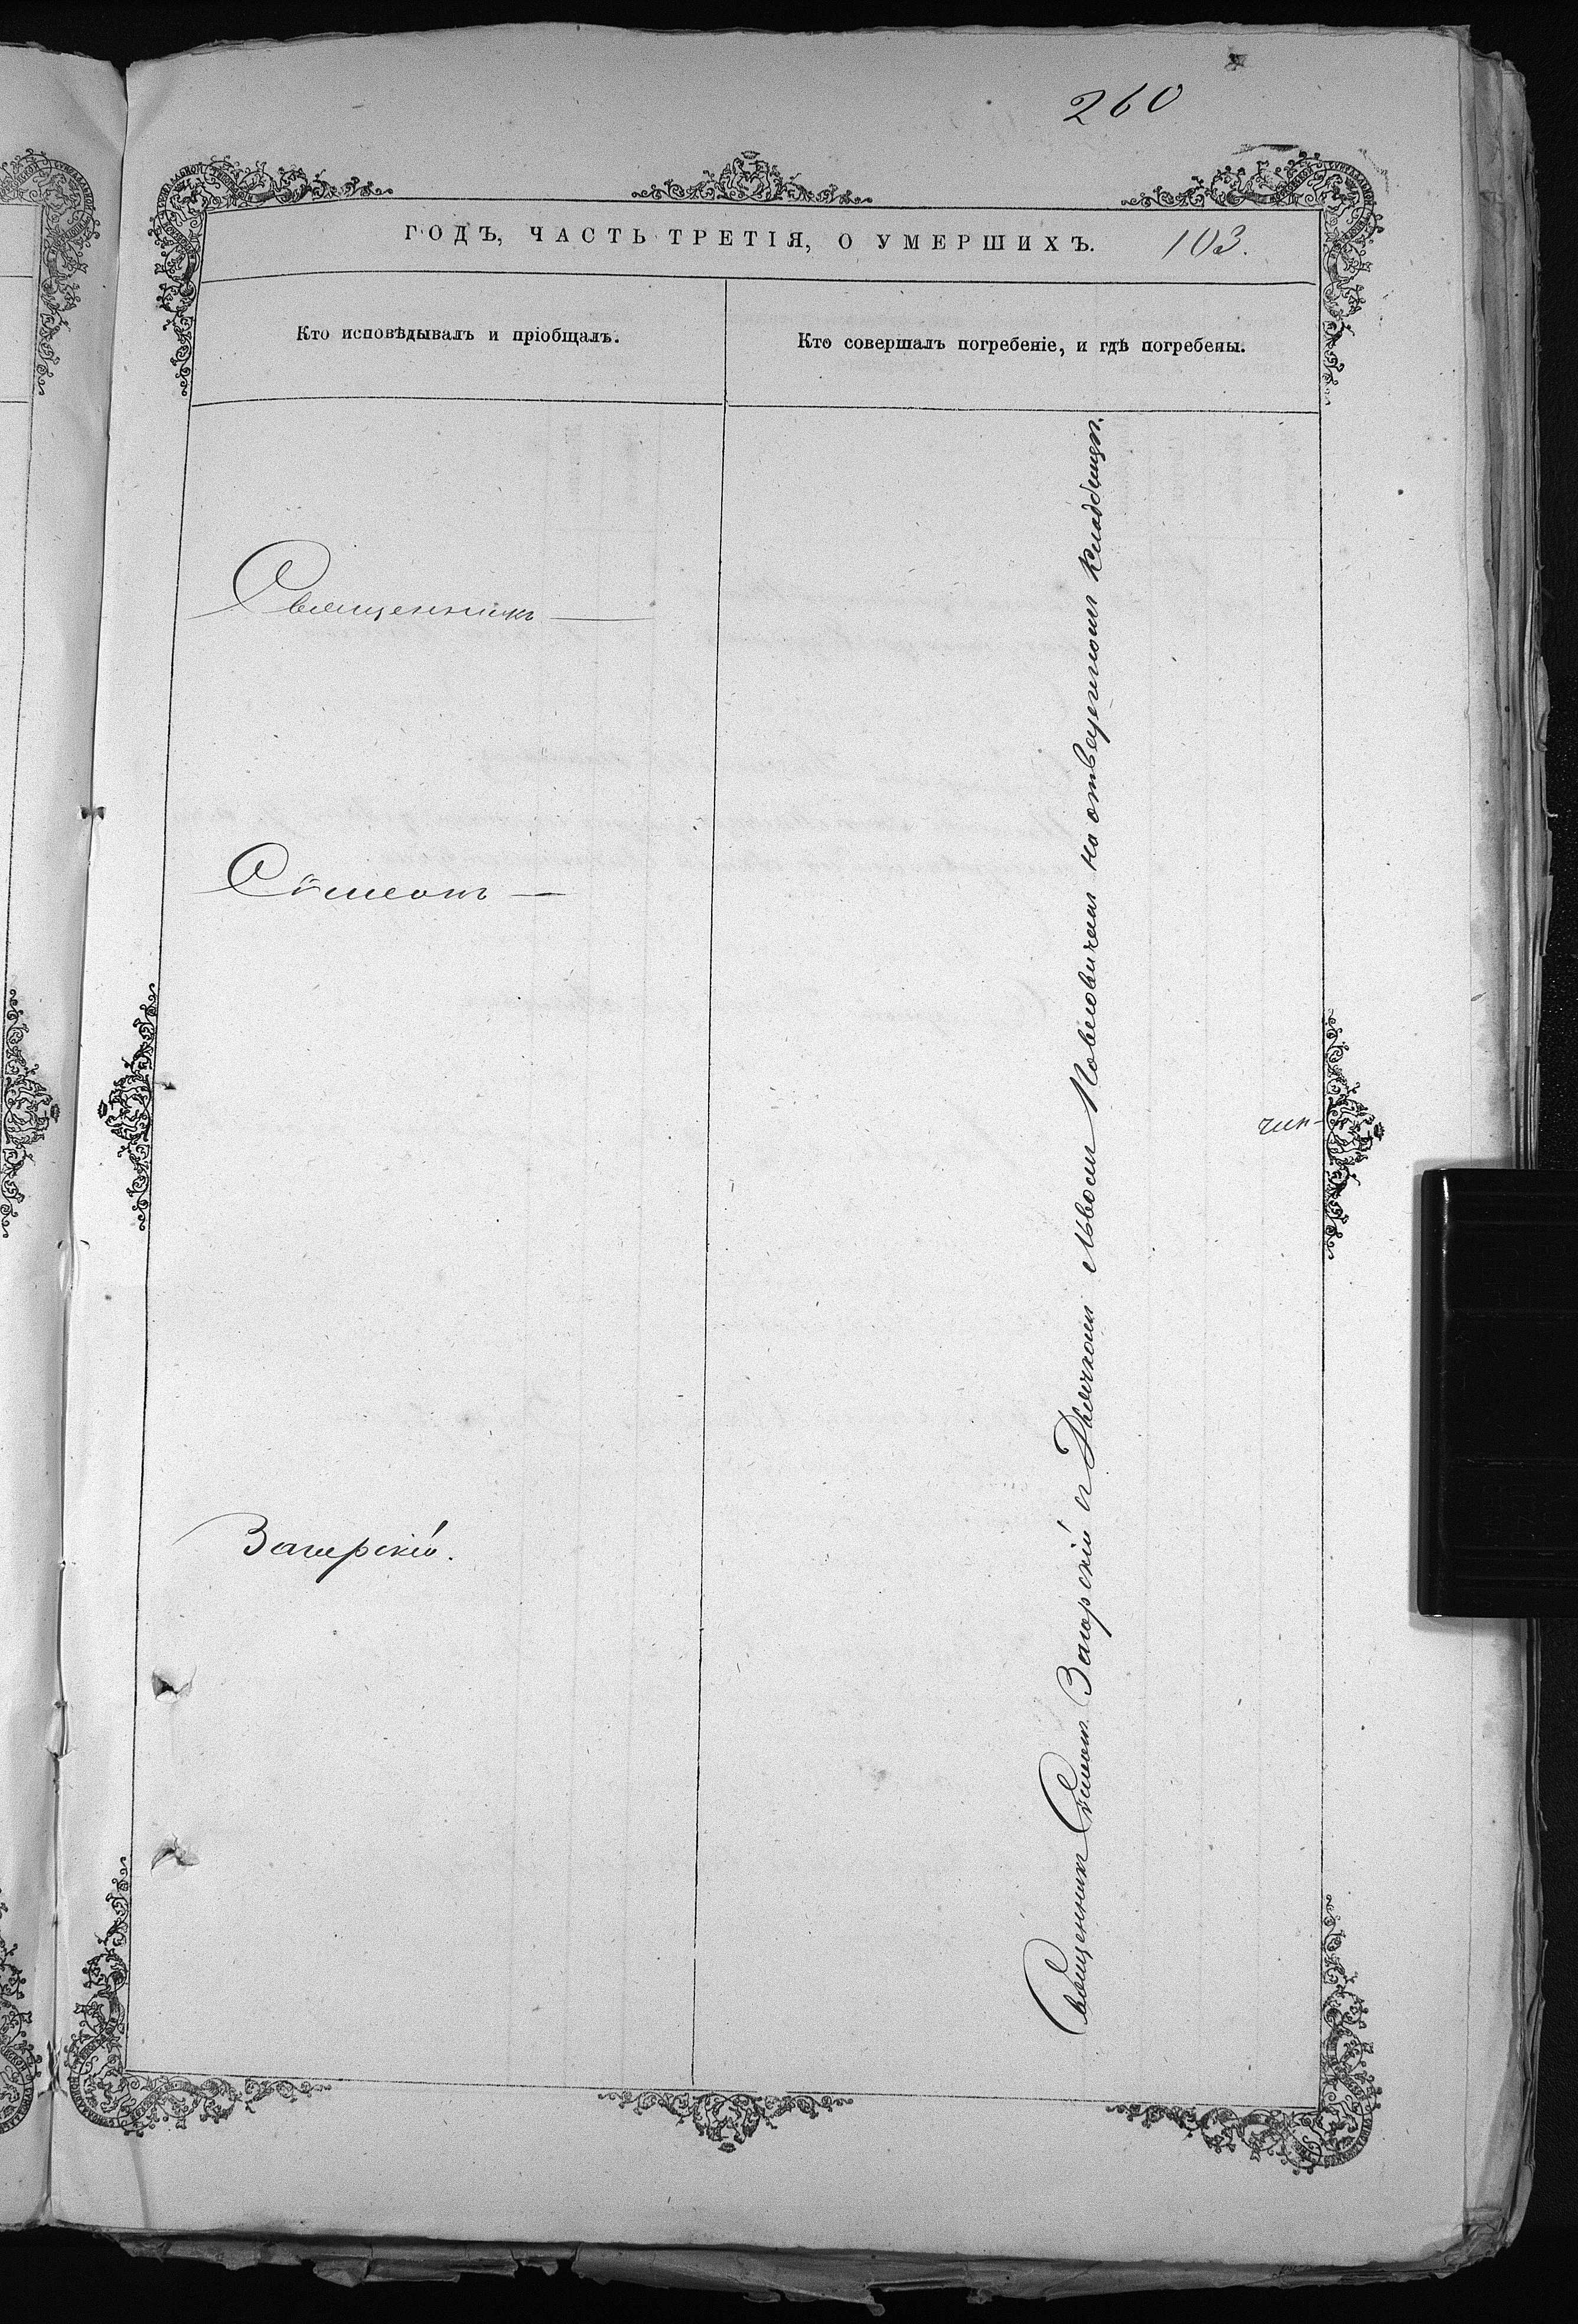 260
ГОДЪ, ЧАСТЬ ТРЕТІЯ, О УМЕРШИХЪ. 103.
Кто исповѣдывалъ и пріобщалъ.
Кто совершалъ погребеніе, и гдѣ погребены.
Священникъ
Сѵмеонъ
Загорскій.
Священникъ Сѵмеонъ Загорскій съ Дьячкомъ Львомъ на отведенномъ кладбищѣ.